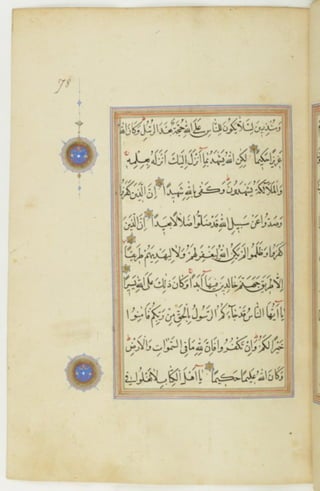 78
ومنذرين لئلا يكون للناس على الله حجة بعد الرسل وكان الله
عزيزا حكيما لكن الله يشهد بما أنزل إليك أنزله بعلمه
والملائكة يشهدون وكفى بالله شهيدا إن الذين كفروا
وصدوا عن سبيل الله قد ضلوا ضلالا بعيدا إن الذين
كفروا وظلموا لم يكن الله ليغفر لهم ولا ليهديهم طريقا
إلا طريق جهنم خالدين فيها أبدا وكان ذلك على الله يسيرا
يا أيها الناس قد جاءكم الرسول بالحق من ربكم فآمنوا
خيرا لكم وإن تكفروا فإن لله ما في السموات والأرض
وكان الله عليما حكيما يا أهل الكتاب لا تغلوا في